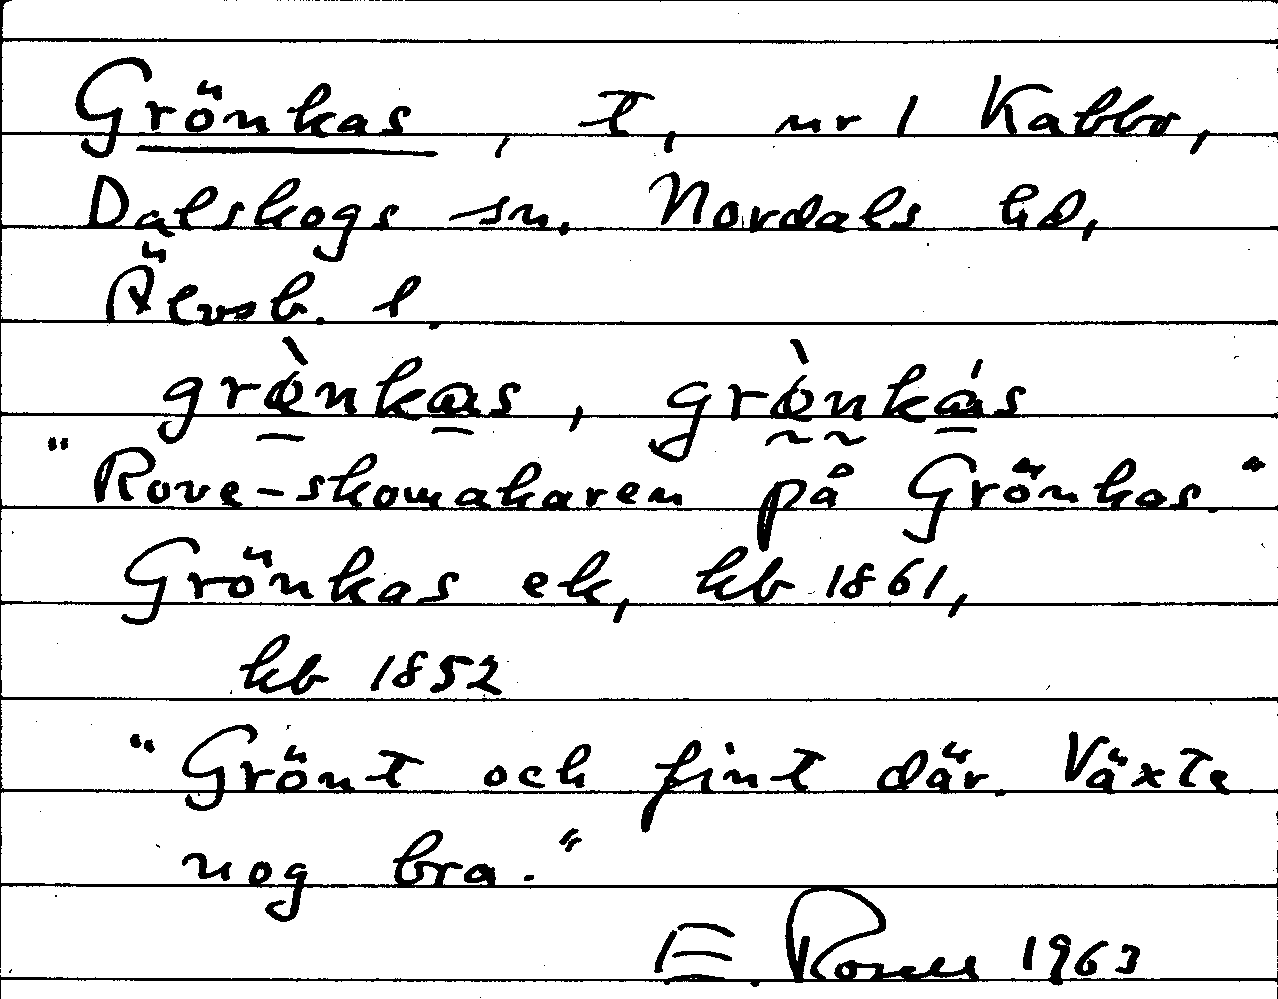 Grönkas, t, nr 1 Kabbo,
Dalskogs sn. Nordals hd,
Älvsb. l.
grø̀nkas, grø̀nkás
"Rove-skomakaren på Grönkas."
Grönkas ek, kb 1861,
kb 1852
"Grönt och fint där. Växte
nog bra."
E. Rosell 1963